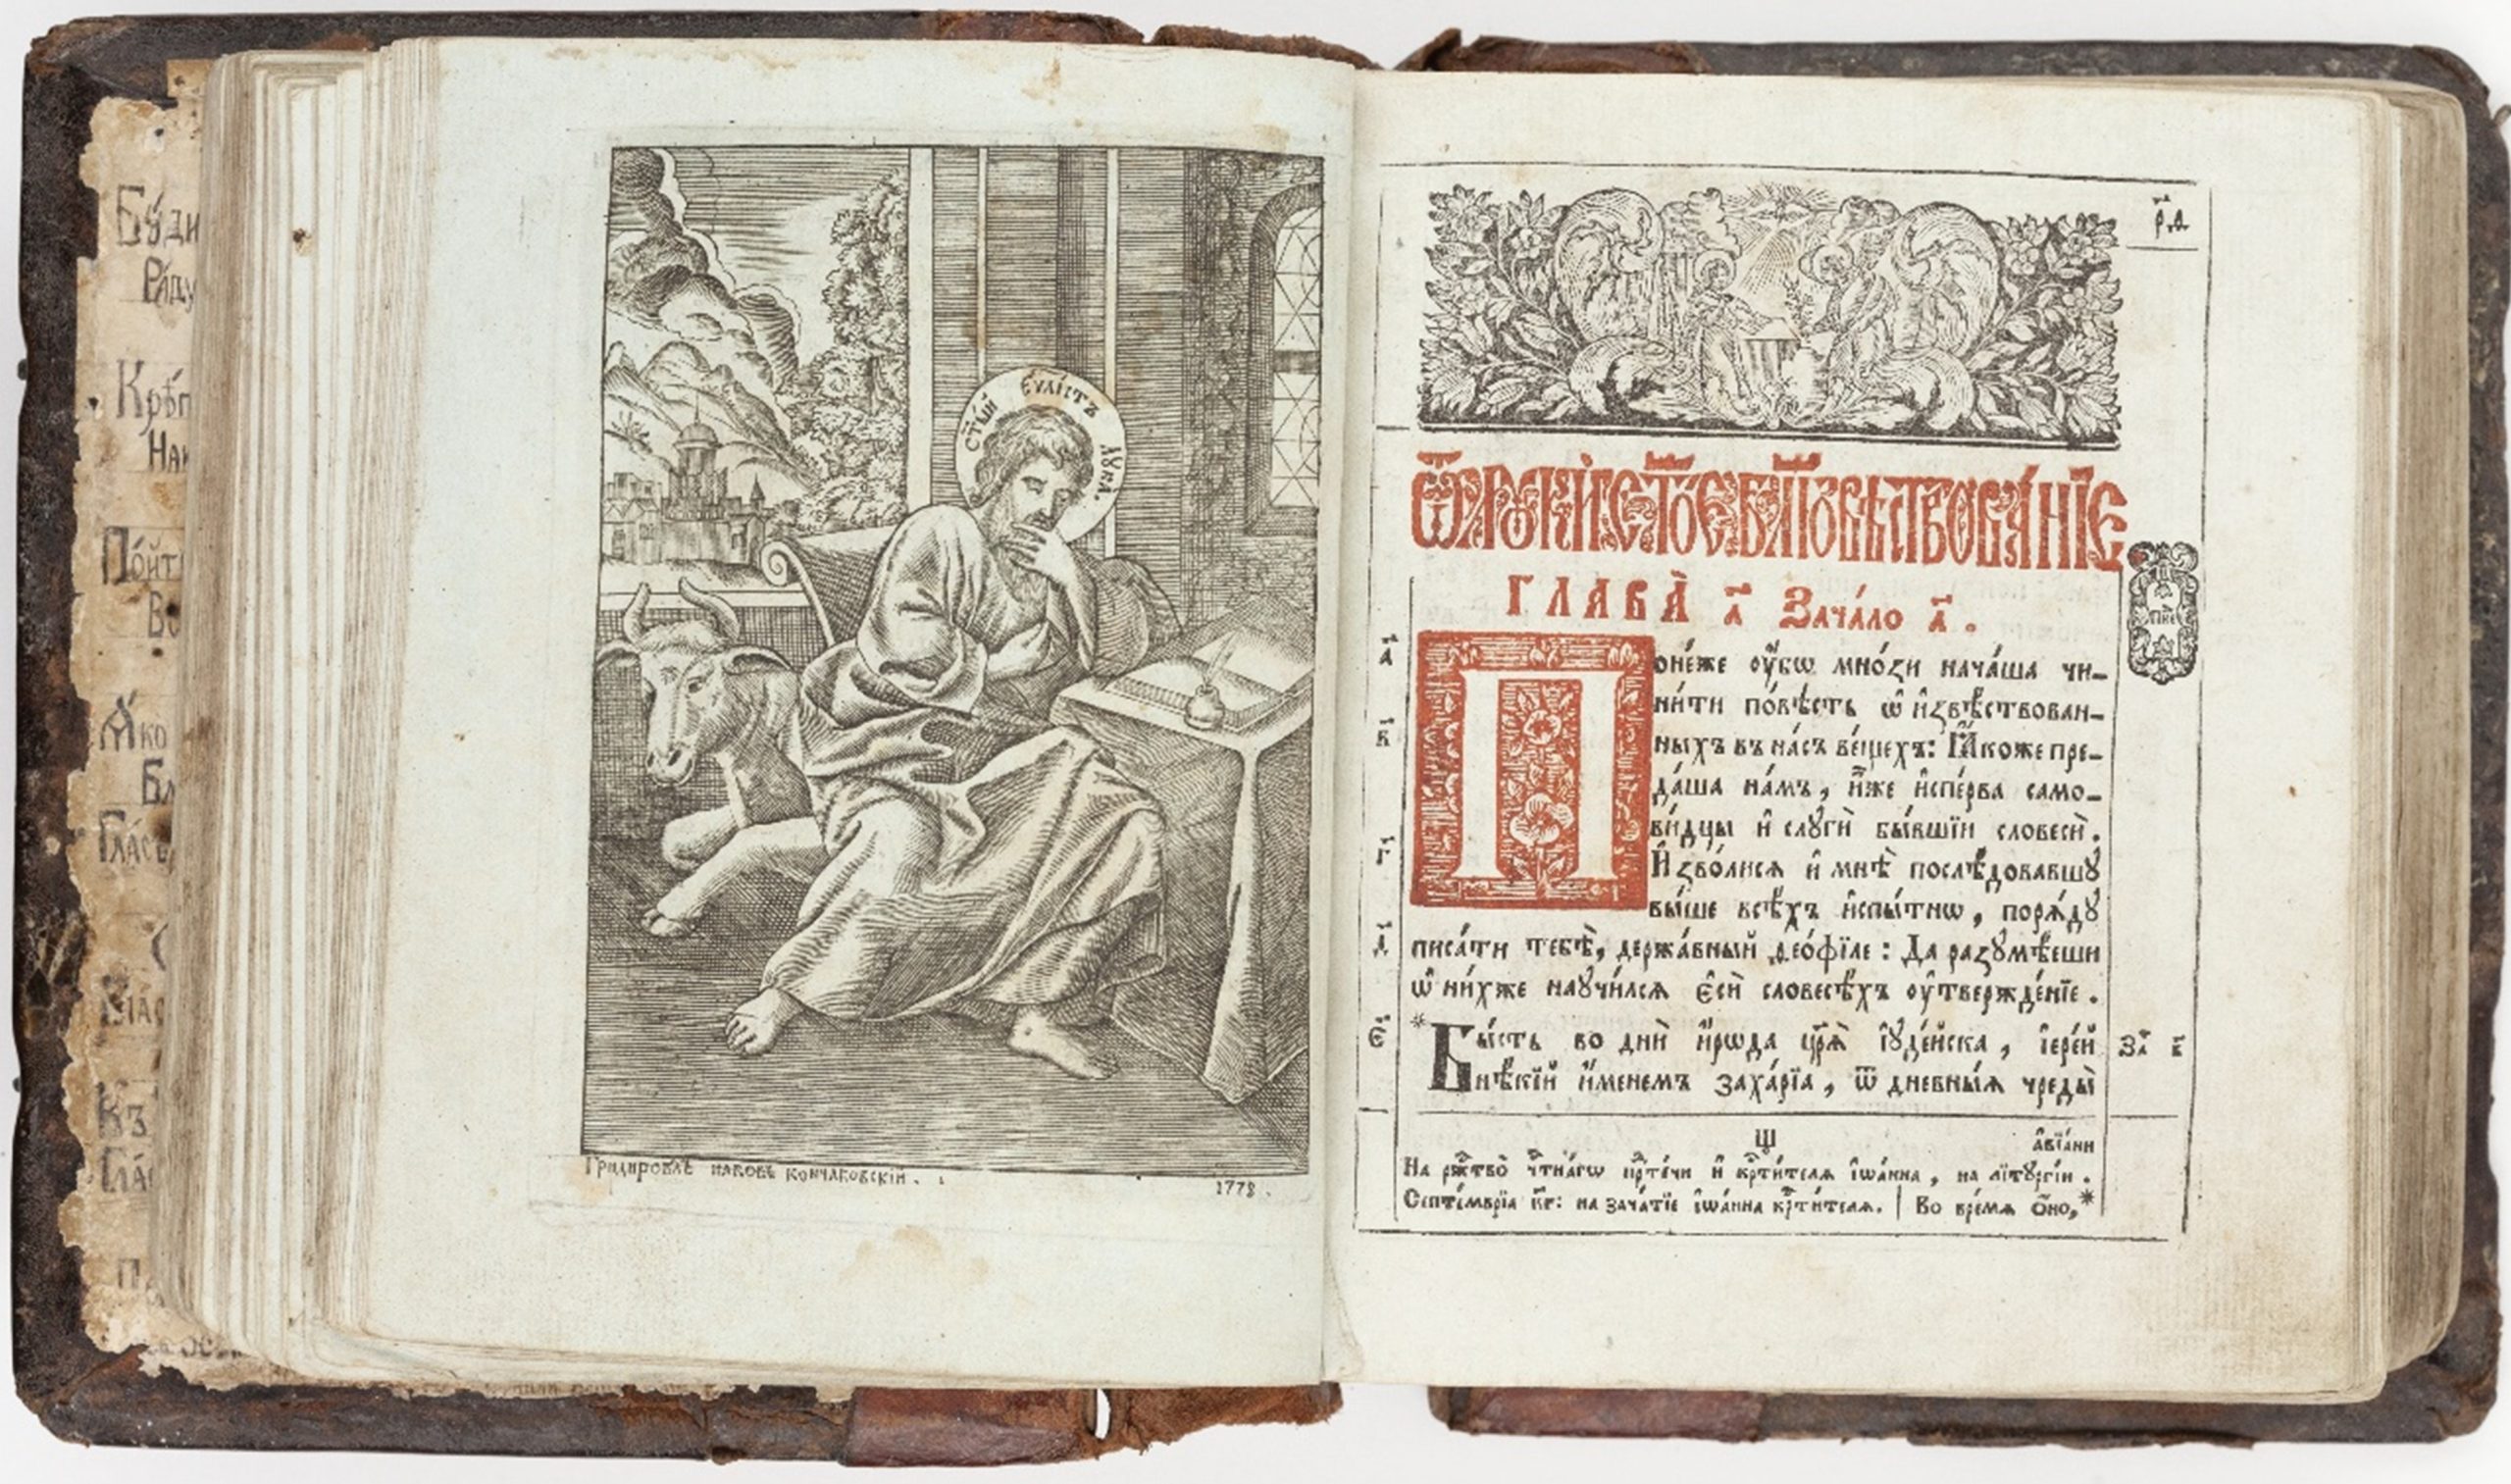 Бꙋ́ди
Ра́дꙋ
Крѣп
На
По́йт
Во
Ꙗ҆́ко
Бл
Гла́съ
Къ
Гла́
ст҃ы́й еѵⷢ҇лістъ лꙋка.
Грыдировалъ иаковъ кончаковскій.
1778.
р҃д
Ѿ лꙋкѝ ст҃о́е бл҃говѣствова́нїе
ГЛАВА̀ а҃ Зача́ло а҃.
а҃
Поне́же оу҆́бѡ мно́зи нача́ша чи-
ни́ти по́вѣсть ѡ҆ и҆звѣ́ствован-
в҃
ныхъ въ на́съ ве́щехъ: Ꙗ҆́коже пре-
да́ша на́мъ, и҆̀же и҆спе́рва само-
ви́дцы и҆ слꙋгѝ бы́вшїи словесѐ.
г҃
И҆зво́лисѧ и҆ мнѣ̀ послѣ́довавшꙋ
вы́ше всѣ́хъ и҆спы́тнѡ, порѧ́дꙋ
д҃
писа́ти тебѣ̀, держа́вный ѳео́фїле: Да разꙋмѣ́еши
ѡ҆ ни́хже наꙋчи́лсѧ є҆сѝ словесѣ́хъ оу҆твержде́нїе.
є҃
*Бы́сть во днѝ и҆́рѡда цр҃ѧ̀ і҆ꙋде́йска, і҆ере́й За҄ в҃
нѣ́кїй и҆́менемъ заха́рїа, ѿ дне́вныѧ чреды̀
Ш
а҆вїа́ни
На рж҃тво̀ чⷭ҇тна́гѡ прⷣте́чи и҆ крⷭ҇ти́телѧ і҆ѡа́нна, на лїтꙋргі́и.
Септе́мврїа к҃г: на зача́тїе і҆ѡа́нна крⷭ҇ти́телѧ. | Во вре́мѧ ѻ҆́но,*